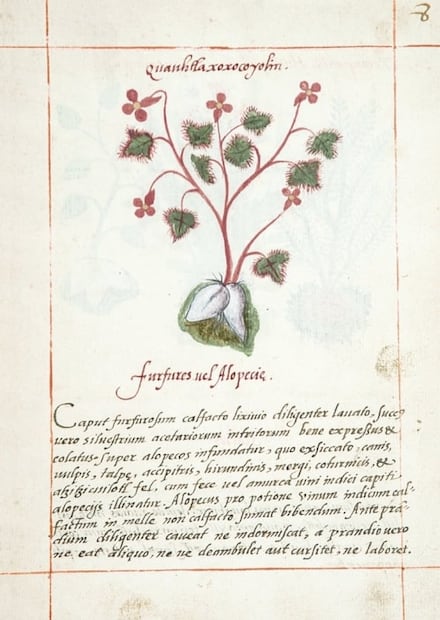 8
Quauhtla xoxocoyolin.
Furfures uel Alopecię.
Caput furfurosum calfacto lixiuio diligenter lauato, succꝰ
vero siluestrium acetariorum intritorum bene expressus &
colatus super alopecos infundatur, quo exsiccato, canis,
vulpis, talpę, accipitris, hirundinis, mergi, coturnicis, &
fel, cum fece vel amurca uini indici capiti
alopecijs illinatur. Alopecus pro potione vinum indicum cal-
factum in melle non calfacto sumat bibendum. Ante pran-
dium diligenter caueat ne indormiscat, á prandio vero
ne eat aliquo, ne ve deambulet aut cursitet, ne laboret.